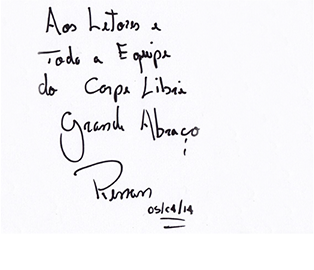 Aos Leitores e
Toda a Equipe
do Corpe Libri
Grande Abraço
!
05/04/14